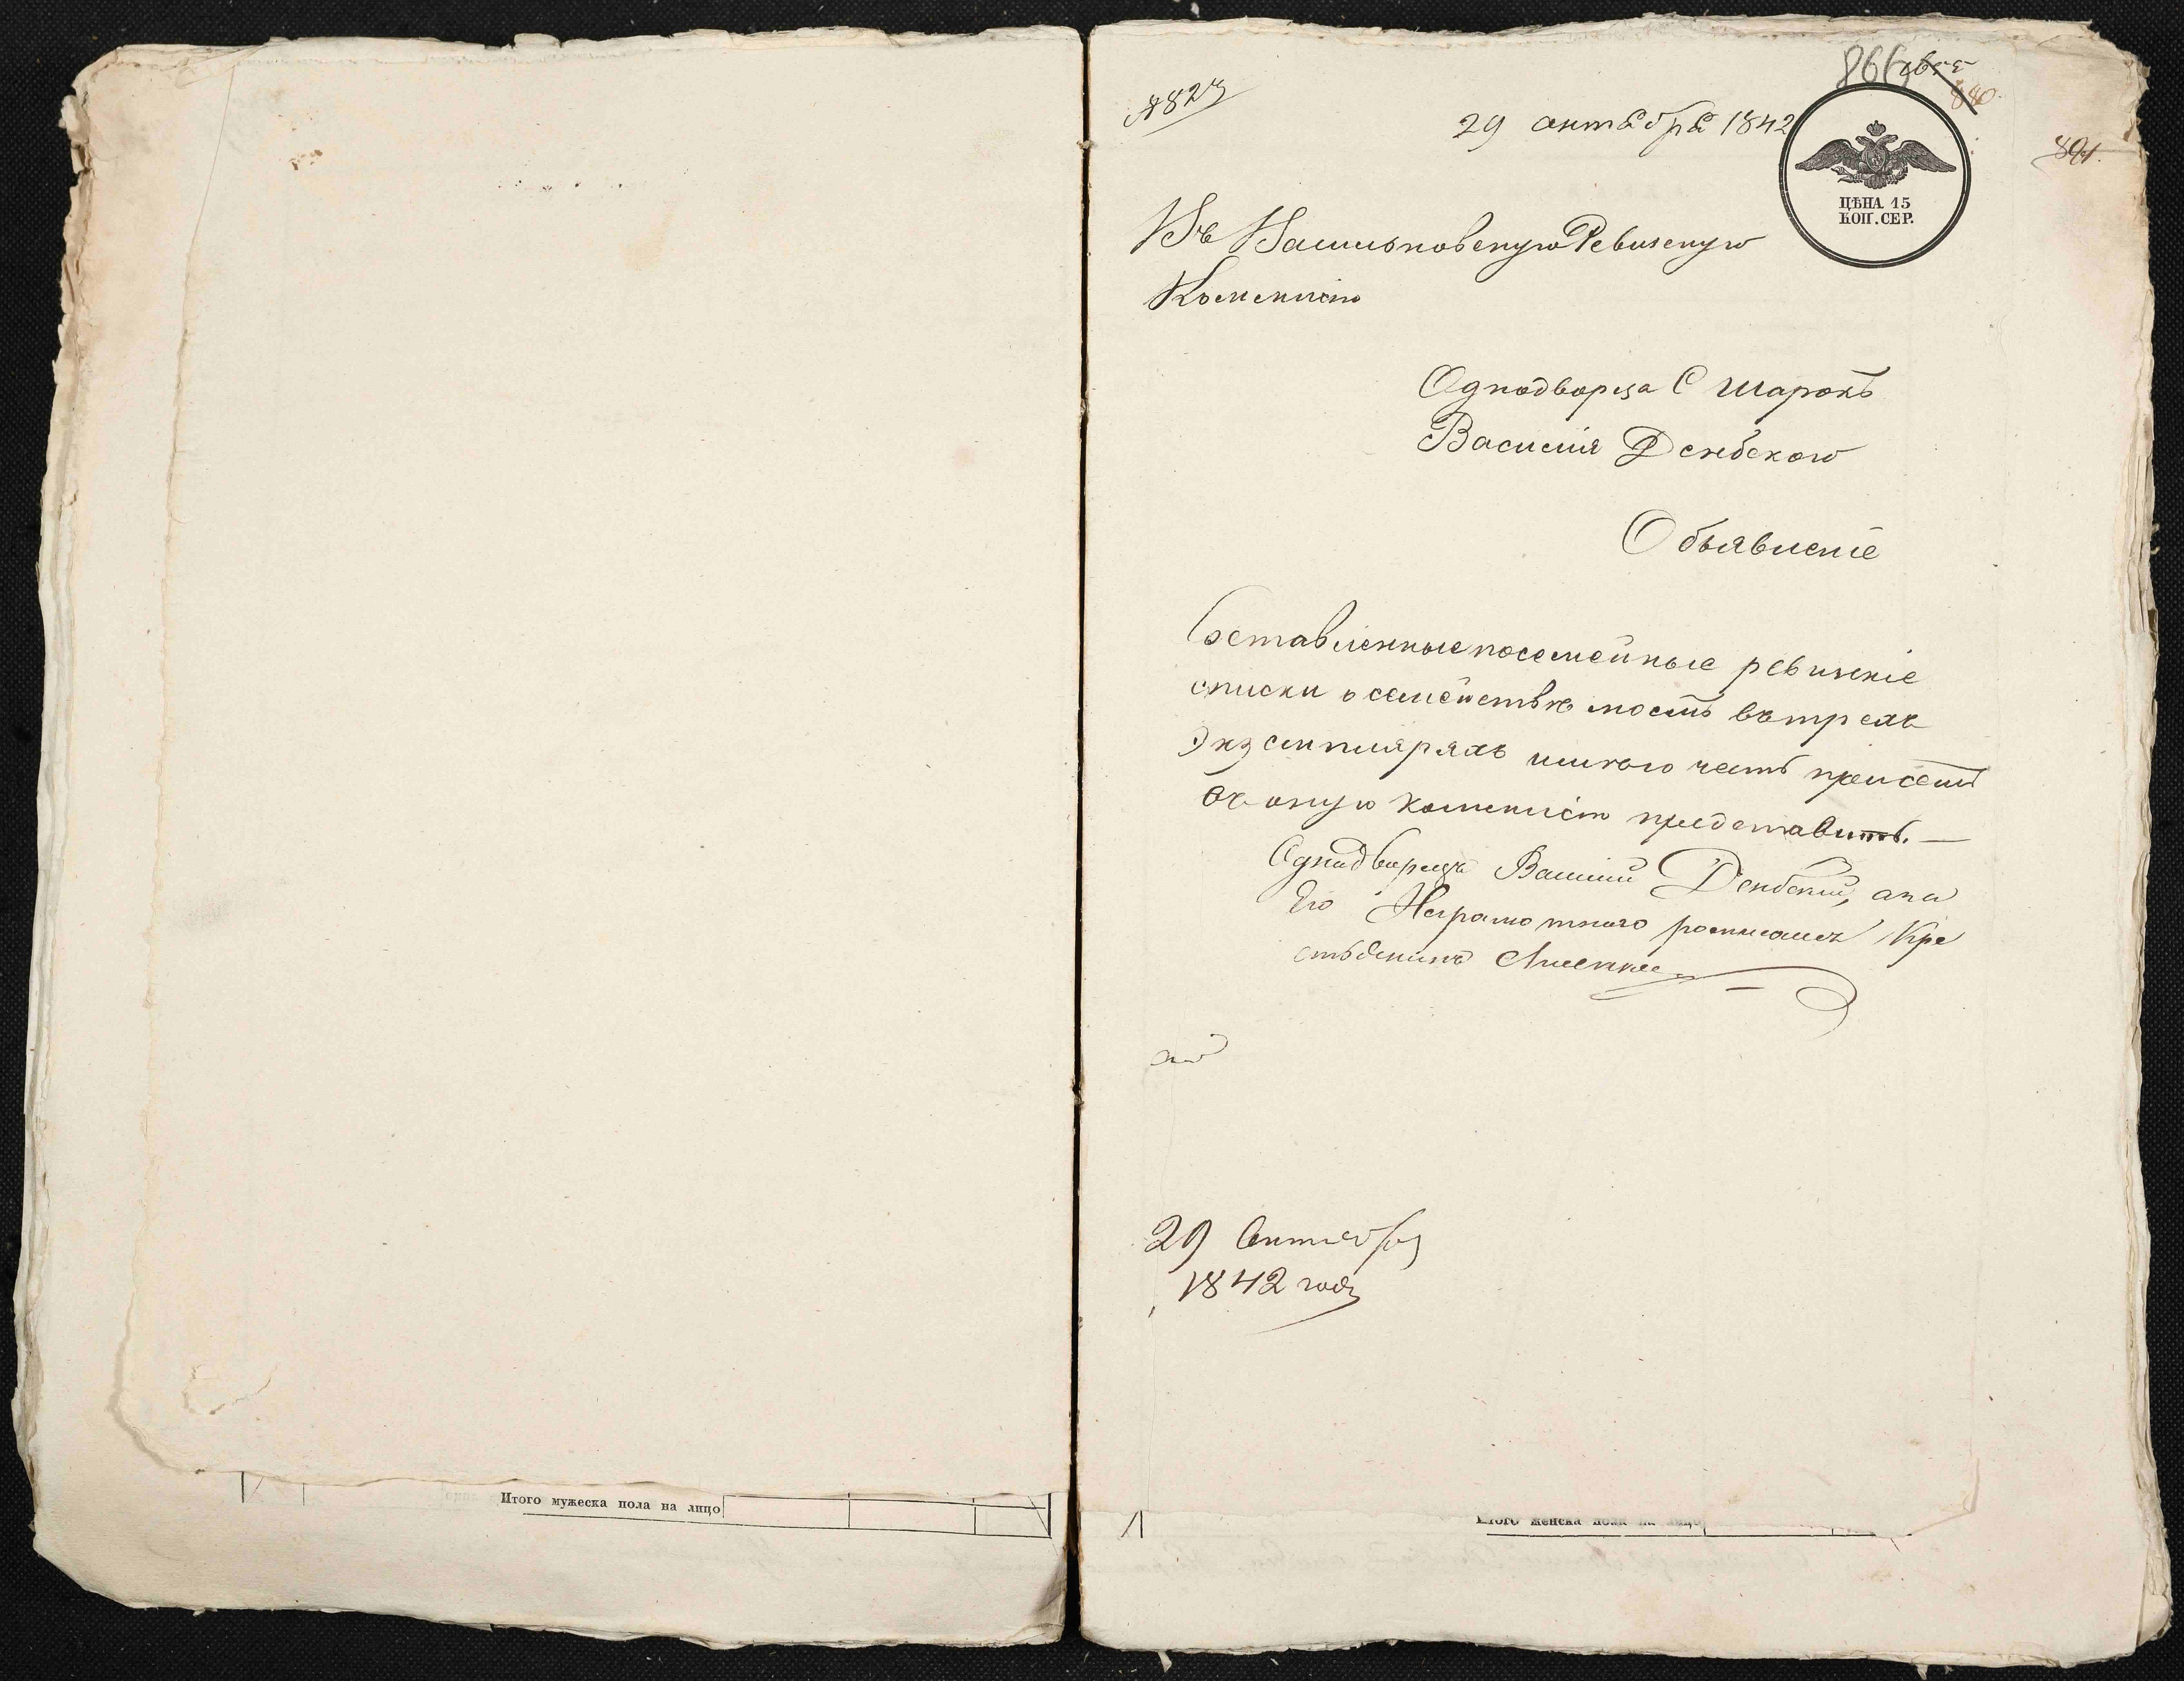 Итого мужеска пола на лицо
29 октября 1842
ЦѢНА 15
КОП. СЕР.
Въ Васильковскую Ревизскую
Комисию
Однодворца С Шарокъ
Василия Денбского
Объявленіе
Составленные посемейные ревизкіе
списки о семействе моемъ въ трехъ
Экземпляряхъ имѣю честь при семъ
въ оную комисию представить. —
Однодворецъ Василий Денбский, а на
Его Неграмотного росписался Кре
стьянинъ
29 Октября
1842 года
Итого женска пола на лицо